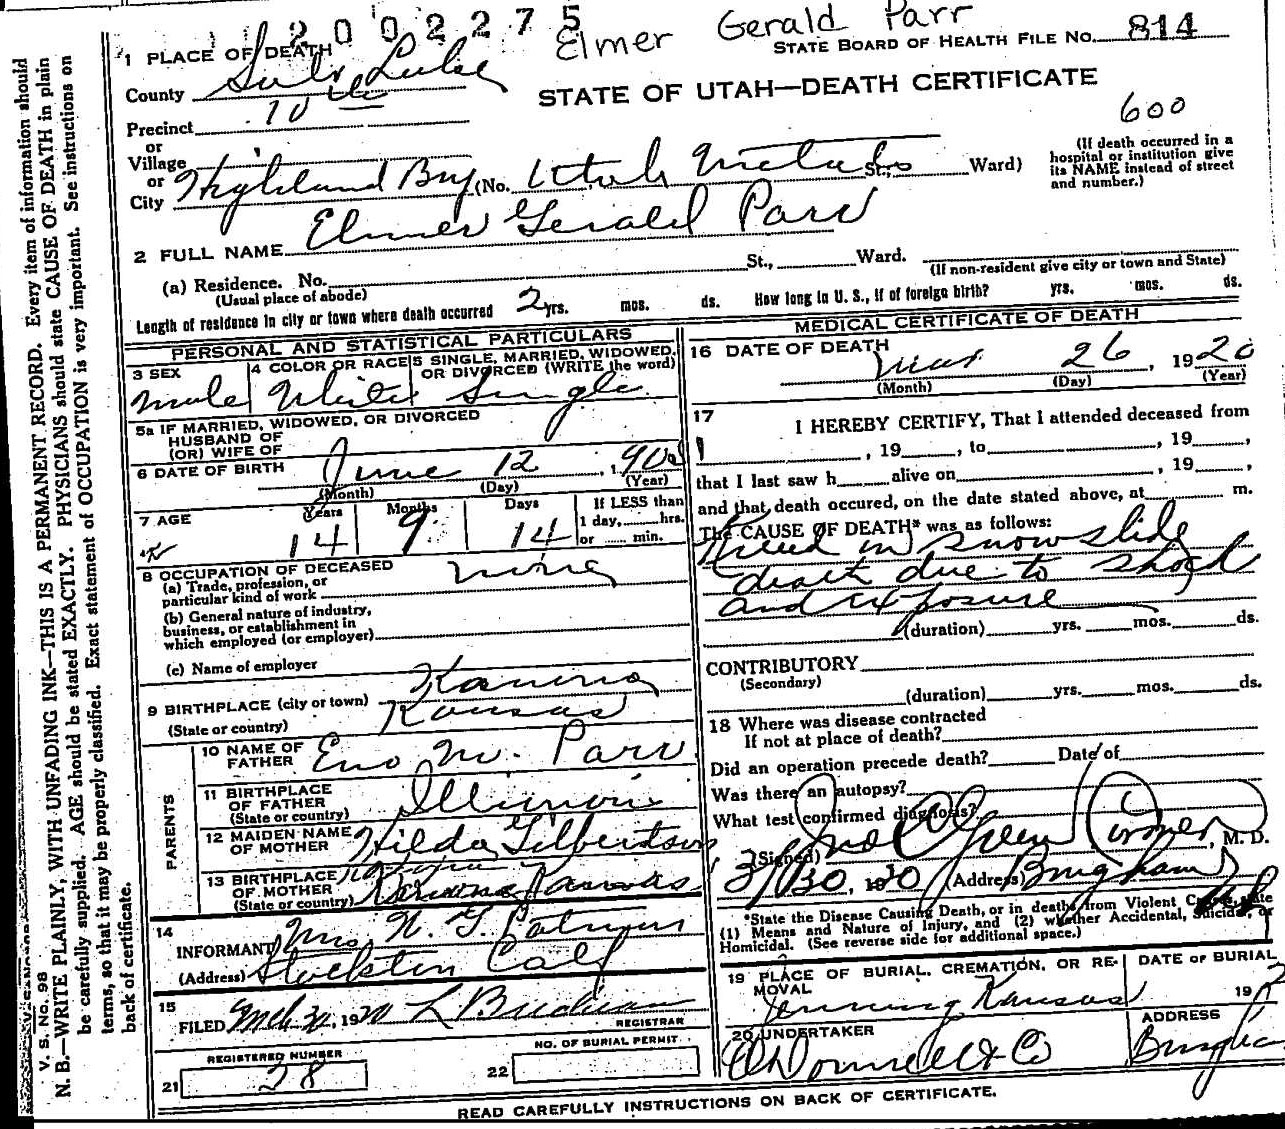 2002275
Elmer Gerald Parr
STATE BOARD OF HEALTH FILE No. 814
1 PLACE OF DEATH
County Salt Lake
STATE OF UTAH—DEATH CERTIFICATE
Precinct 10th
600
or
Village
or
City Highland Boy (No. Utah Metals St., Ward)
(If death occurred in a
hospital or institution give
its NAME instead of street
and number.)
2 FULL NAME Elmer Gerald Parr
(a) Residence. No. St., Ward.
(Usual place of abode)
(If non-resident give city or town and State)
Length of residence in city or town where death occurred 2 yrs. mos. ds. How long in U. S., if of foreign birth? yrs. mos. ds.
PERSONAL AND STATISTICAL PARTICULARS
3 SEX
male
4 COLOR OR RACE
White
5 SINGLE, MARRIED, WIDOWED,
OR DIVORCED (WRITE the word)
Single
5a IF MARRIED, WIDOWED, OR DIVORCED
HUSBAND OF
(OR) WIFE OF
6 DATE OF BIRTH June 12, 190
(Month) (Day) (Year)
7 AGE Years Months Days
14 9 14
If LESS than
1 day, hrs.
or min.
8 OCCUPATION OF DECEASED
(a) Trade, profession, or
particular kind of work
(b) General nature of industry,
business, or establishment in
which employed (or employer)
(c) Name of employer
9 BIRTHPLACE (city or town)
(State or country) Kansas
PARENTS
10 NAME OF
FATHER M. Parr
11 BIRTHPLACE
OF FATHER
(State or country) Illinois
12 MAIDEN NAME
OF MOTHER Hilda Gilbertson
13 BIRTHPLACE
OF MOTHER
(State or country) Kansas
14
INFORMANT Mrs.
(Address) Stockton Calif
15
FILED Mch 30, 1920 L
REGISTRAR
REGISTERED NUMBER
21 28
NO. OF BURIAL PERMIT
22
MEDICAL CERTIFICATE OF DEATH
16 DATE OF DEATH
Mar 26, 1920
(Month) (Day) (Year)
17
I HEREBY CERTIFY, That I attended deceased from
, 19 , to , 19 ,
that I last saw h alive on , 19 ,
and that death occured, on the date stated above, at m.
The CAUSE OF DEATH* was as follows:
in snowslide
death due to shock
and exposure
(duration) yrs. mos. ds.
CONTRIBUTORY
(Secondary)
(duration) yrs. mos. ds.
18 Where was disease contracted
If not at place of death?
Did an operation precede death? Date of
Was there an autopsy?
What test confirmed diagnosis?
(Signed) Jno C Green Coroner, M. D.
3/30, 1920 (Address) Bingham
*State the Disease Causing Death, or in deaths from Violent Causes, state
(1) Means and Nature of Injury, and (2) whether Accidental, Suicidal, or
Homicidal. (See reverse side for additional space.)
19 PLACE OF BURIAL, CREMATION, OR RE-
MOVAL
Jennings Kansas
DATE OF BURIAL
19
20 UNDERTAKER
O'Donnell & Co
ADDRESS
Bingham
READ CAREFULLY INSTRUCTIONS ON BACK OF CERTIFICATE.
V. S. No. 98
N. B.—WRITE PLAINLY, WITH UNFADING INK—THIS IS A PERMANENT RECORD. Every item of information should
be carefully supplied. AGE should be stated EXACTLY. PHYSICIANS should state CAUSE OF DEATH in plain
terms, so that it may be properly classified. Exact statement of OCCUPATION is very important. See instructions on
back of certificate.